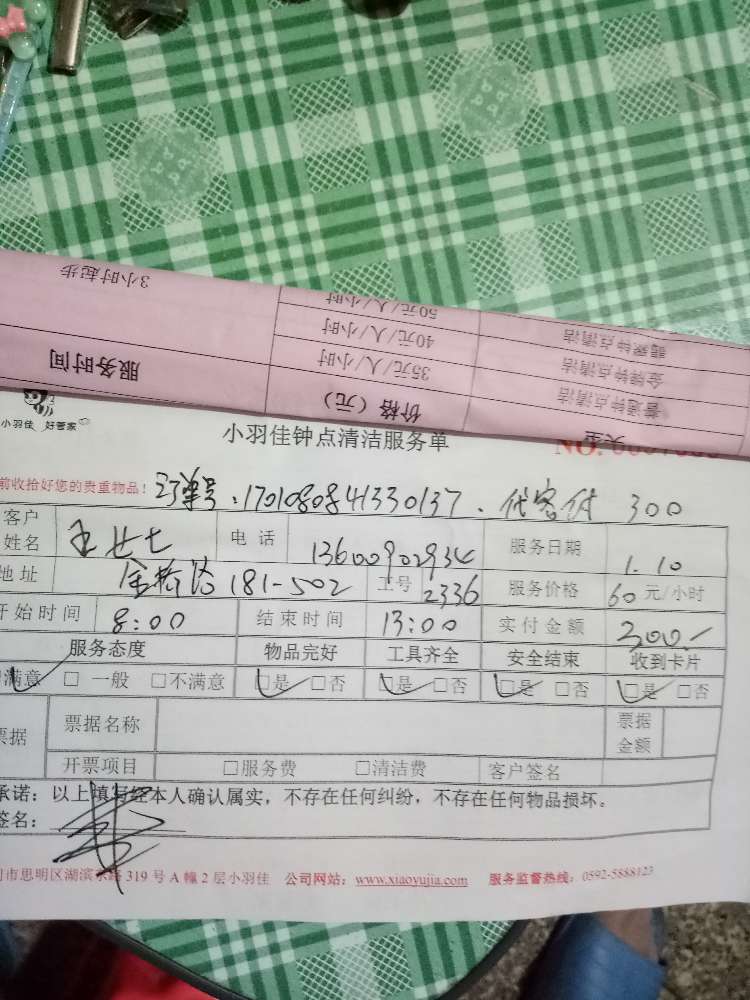 3小时起步
50元/人/小时
40元/人/小时
金牌钟点清洁
服务时间
35元/人/小时
普通钟点清洁
价格（元）
类型
小羽佳 好管家
小羽佳钟点清洁服务单
NO.
前收拾好您的贵重物品！ 订单号：1701080841330137、代客付 300
客户姓名 电话 13600902934 服务日期 1.10
地址 181-502 工号 2336 服务价格 60元/小时
开始时间 8:00 结束时间 13:00 实付金额 300-
服务态度 物品完好 工具齐全 安全结束 收到卡片
满意 □ 一般 □不满意 □是 □否 □是 □否 □是 □否 □是 □否
票据 票据名称 票据金额
开票项目 □服务费 □清洁费 客户签名
承诺：以上填写经本人确认属实，不存在任何纠纷，不存在任何物品损坏。
签名：
门市思明区湖滨东路 319 号 A 幢 2 层小羽佳 公司网站：www.xiaoyujia.com 服务监督热线：0592-5888123